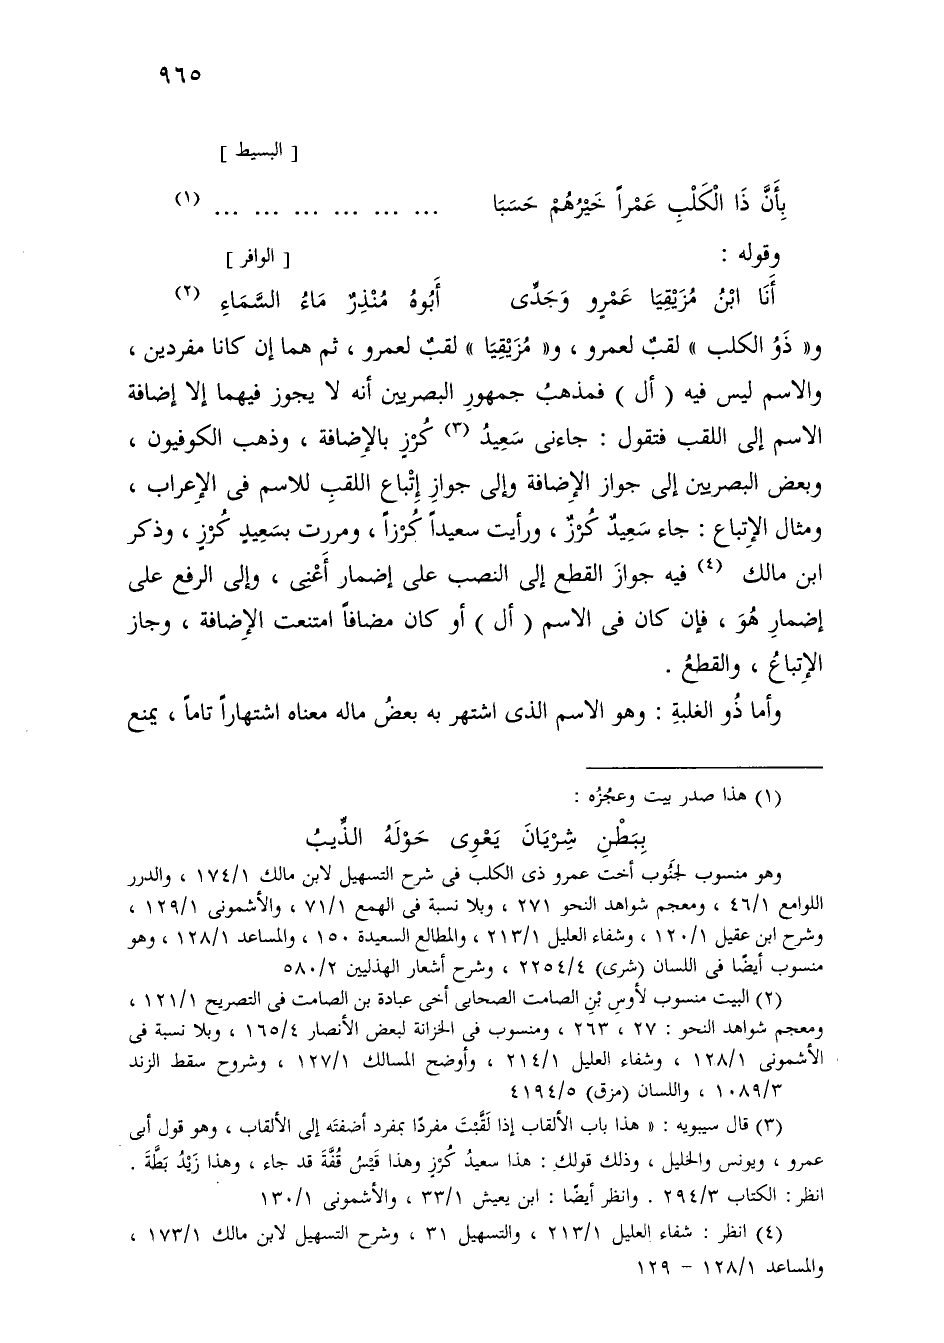 ٩٦٥
[ البسيط ]
بِأَنَّ ذَا الْكَلْبِ عَمْراً خَيْرُهُمْ حَسَبَا ... ... ... ... ... ... (١)
وقوله : [ الوافر ]
أَنَا ابْنُ مُزَيْقِيَا عَمْرٍو وَجَدِّى أَبُوهُ مُنْذِرٌ مَاءُ السَّمَاءِ (٢)
و« ذَوُ الكلب » لقبٌ لعمرو ، و« مُزَيْقِيَا » لقبٌ لعمرو ، ثم هما إن كانا مفردين ،
والاسم ليس فيه ( أل ) فمذهبُ جمهورِ البصريين أنه لا يجوز فيهما إلا إضافة
الاسم إلى اللقب فتقول : جاءنى سَعِيدُ (٣) كُرْزٍ بالإضافة ، وذهب الكوفيون ،
وبعض البصريين إلى جواز الإضافة وإلى جوازِ إِتْباع اللقبِ للاسم فى الإعراب ،
ومثال الإتباع : جاء سَعِيدٌ كُرْزٌ ، ورأيت سعيداً كُرْزاً ، ومررت بسَعِيدٍ كُرْزٍ ، وذكر
ابن مالك (٤) فيه جوازَ القطع إلى النصب على إضمار أَعْنِى ، وإلى الرفع على
إضمارِ هُوَ ، فإن كان فى الاسم ( أل ) أو كان مضافاً امتنعت الإضافة ، وجاز
الإتباعُ ، والقطعُ .
وأما ذُو الغلبةِ : وهو الاسم الذى اشتهر به بعضُ ماله معناه اشتهاراً تاماً ، يمنع
(١) هذا صدر بيت وعجُزُه :
بِبَطْنِ شِرْيَانَ يَعْوِى حَوْلَهُ الذِّيبُ
وهو منسوب لجَنُوب أخت عمرو ذى الكلب فى شرح التسهيل لابن مالك ١٧٤/١ ، والدرر
اللوامع ٤٦/١ ، ومعجم شواهد النحو ٢٧١ ، وبلا نسبة فى الهمع ٧١/١ ، والأشمونى ١٢٩/١ ،
وشرح ابن عقيل ١٢٠/١ ، وشفاء العليل ٢١٣/١ ، والمطالع السعيدة ١٥٠ ، والمساعد ١٢٨/١ ، وهو
منسوب أيضًا فى اللسان (شرى) ٢٢٥٤/٤ ، وشرح أشعار الهذليين ٥٨٠/٢
(٢) البيت منسوب لأوسِ بْنِ الصامت الصحابى أخى عبادة بن الصامت فى التصريح ١٢١/١ ،
ومعجم شواهد النحو : ٢٧ ، ٢٦٣ ، ومنسوب فى الخزانة لبعض الأنصار ١٦٥/٤ ، وبلا نسبة فى
الأشمونى ١٢٨/١ ، وشفاء العليل ٢١٤/١ ، وأوضح المسالك ١٢٧/١ ، وشروح سقط الزند
١٠٨٩/٣ ، واللسان (مزق) ٤١٩٤/٥
(٣) قال سيبويه : « هذا باب الألقاب إذا لَقَّبْتَ مفردًا بمفرد أضفتَه إلى الألقاب ، وهو قول أبى
عمرو ، ويونس والخليل ، وذلك قولك : هذا سعيدُ كُرْزٍ وهذا قَيْسُ قُفَّةَ قد جاء ، وهذا زَيْدُ بَطَّةَ .
انظر : الكتاب ٢٩٤/٣ . وانظر أيضًا : ابن يعيش ٣٣/١ ، والأشمونى ١٣٠/١
(٤) انظر : شفاء العليل ٢١٣/١ ، والتسهيل ٣١ ، وشرح التسهيل لابن مالك ١٧٣/١ ،
والمساعد ١٢٨/١ – ١٢٩